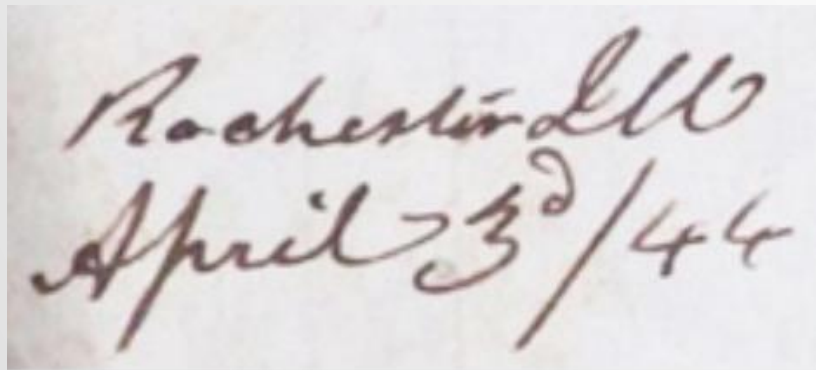 Rochester Ill
April 3d/44